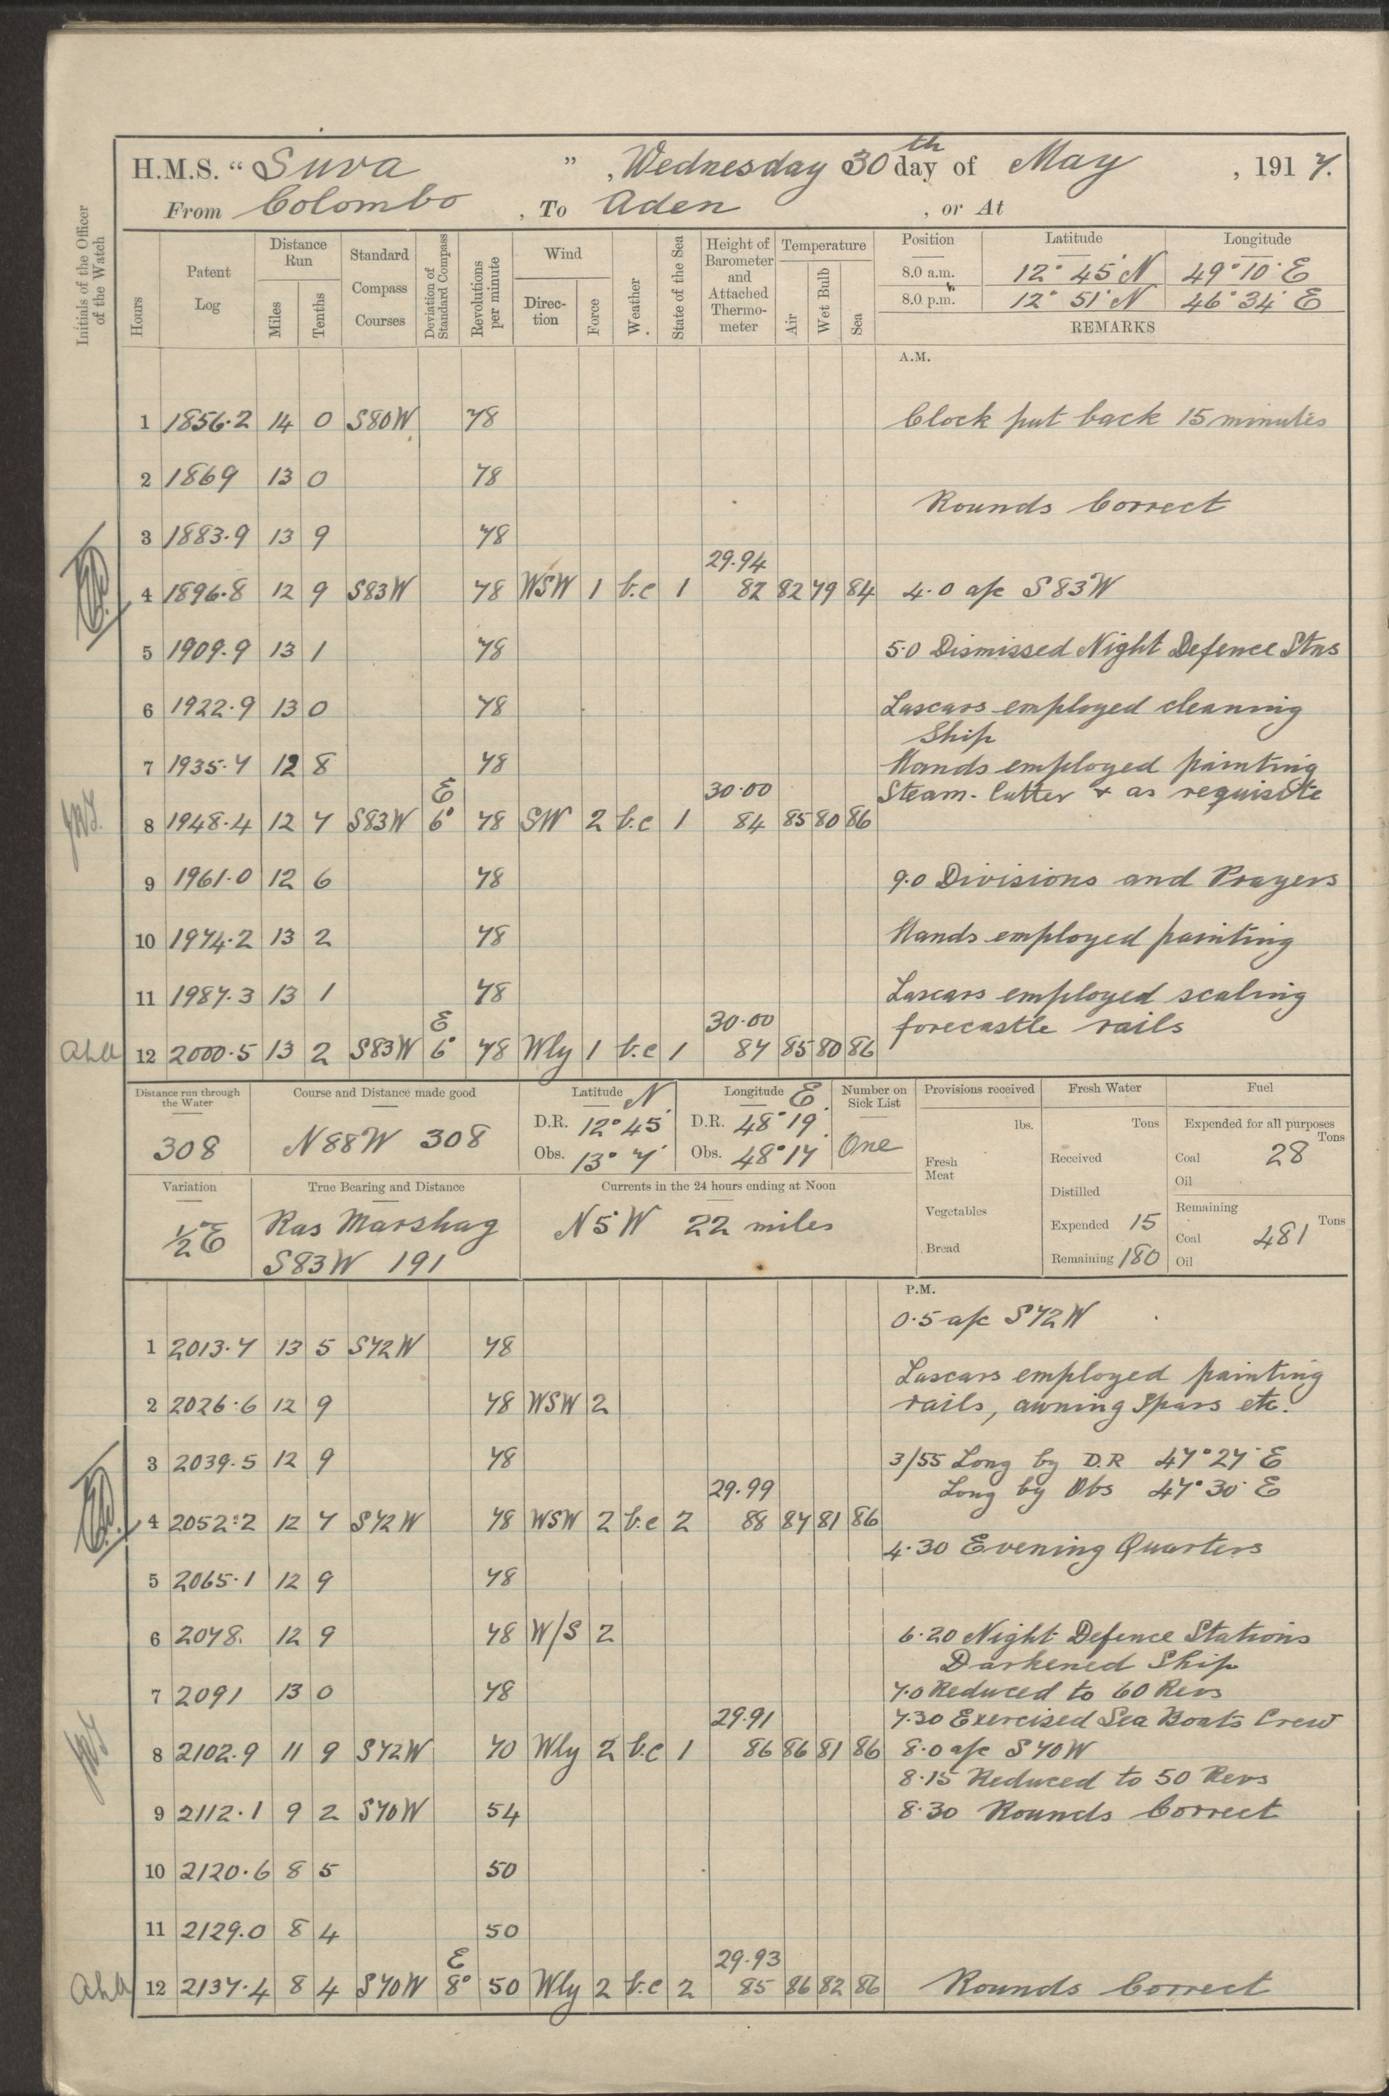 H.M.S. “ Suva ” , Wednesday 30th day of May , 1917.
From Colombo , To Aden , or At
Initials of the Officer of the Watch
Hours
Patent Log
Distance Run
Miles
Tenths
Standard Compass Courses
Deviation of Standard Compass
Revolutions per minute
Wind
Direction
Force
Weather
State of the Sea
Height of Barometer and Attached Thermometer
Temperature
Air
Wet Bulb
Sea
Position Latitude Longitude
8.0 a.m. 12° 45' N 49° 10' E
8.0 p.m. 12° 51' N 46° 34' E
REMARKS
A.M.
1 1856.2 14 0 S80W 78 Clock put back 15 minutes
2 1869 13 0 78
Rounds Correct
3 1883.9 13 9 78
29.94
4 1896.8 12 9 S83W 78 WSW 1 b.c 1 82 82 79 84 4.0 a/c S83W
5 1909.9 13 1 78 5.0 Dismissed Night Defence Stns
6 1922.9 13 0 78 Lascars employed cleaning
Ship
7 1935.7 12 8 78 Hands employed painting
E 30.00 Steam-Cutter & as requisite
8 1948.4 12 7 S83W 6° 78 SW 2 b.c 1 84 85 80 86
9 1961.0 12 6 78 9.0 Divisions and Prayers
10 1974.2 13 2 78 Hands employed painting
11 1987.3 13 1 78 Lascars employed scaling
E 30.00 forecastle rails
12 2000.5 13 2 S83W 6° 78 Wly 1 b.c 1 87 85 80 86
Distance run through the Water
308
Course and Distance made good
N88W 308
Latitude N
D.R. 12° 45'
Obs. 13° 7'
Longitude E
D.R. 48° 19'
Obs. 48° 17'
Number on Sick List
One
Provisions received
lbs.
Fresh Meat
Vegetables
Bread
Fresh Water
Tons
Received
Distilled
Expended 15
Remaining 180
Fuel
Expended for all purposes
Tons
Coal 28
Oil
Remaining
Tons
Coal 481
Oil
Variation
½° E
True Bearing and Distance
Ras Marshag
S83W 191
Currents in the 24 hours ending at Noon
N5°W 22 miles
P.M.
0.5 a/c S72W
1 2013.7 13 5 S72W 78
Lascars employed painting
2 2026.6 12 9 78 WSW 2 rails, awning spars etc.
3 2039.5 12 9 78 3/55 Long by D.R 47° 27' E
29.99 Long by Obs 47° 30' E
4 2052.2 12 7 S72W 78 WSW 2 b.c 2 88 87 81 86
4.30 Evening Quarters
5 2065.1 12 9 78
6 2078. 12 9 78 W/S 2 6.20 Night Defence Stations
Darkened Ship
7 2091 13 0 78 7.0 Reduced to 60 Revs
29.91 7.30 Exercised Sea Boats Crew
8 2102.9 11 9 S72W 70 Wly 2 b.c 1 86 86 81 86 8.0 a/c S70W
8.15 Reduced to 50 Revs
9 2112.1 9 2 S70W 54 8.30 Rounds Correct
10 2120.6 8 5 50
11 2129.0 8 4 50
E 29.93
12 2137.4 8 4 S70W 8° 50 Wly 2 b.c 2 85 86 82 86 Rounds Correct